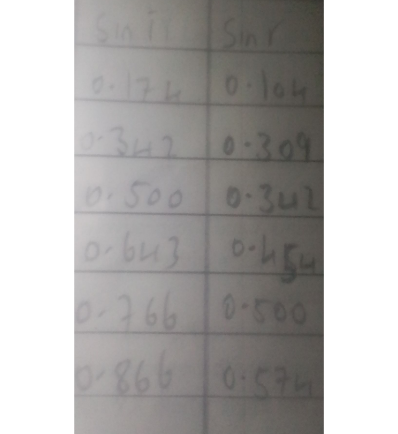 sin i sin r
0.174 0.104
0.342 0.309
0.500 0.342
0.643 0.454
0.766 0.500
0.866 0.574